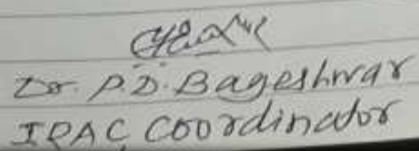 Dr. P.D. Bageshwar
IQAC Coordinator